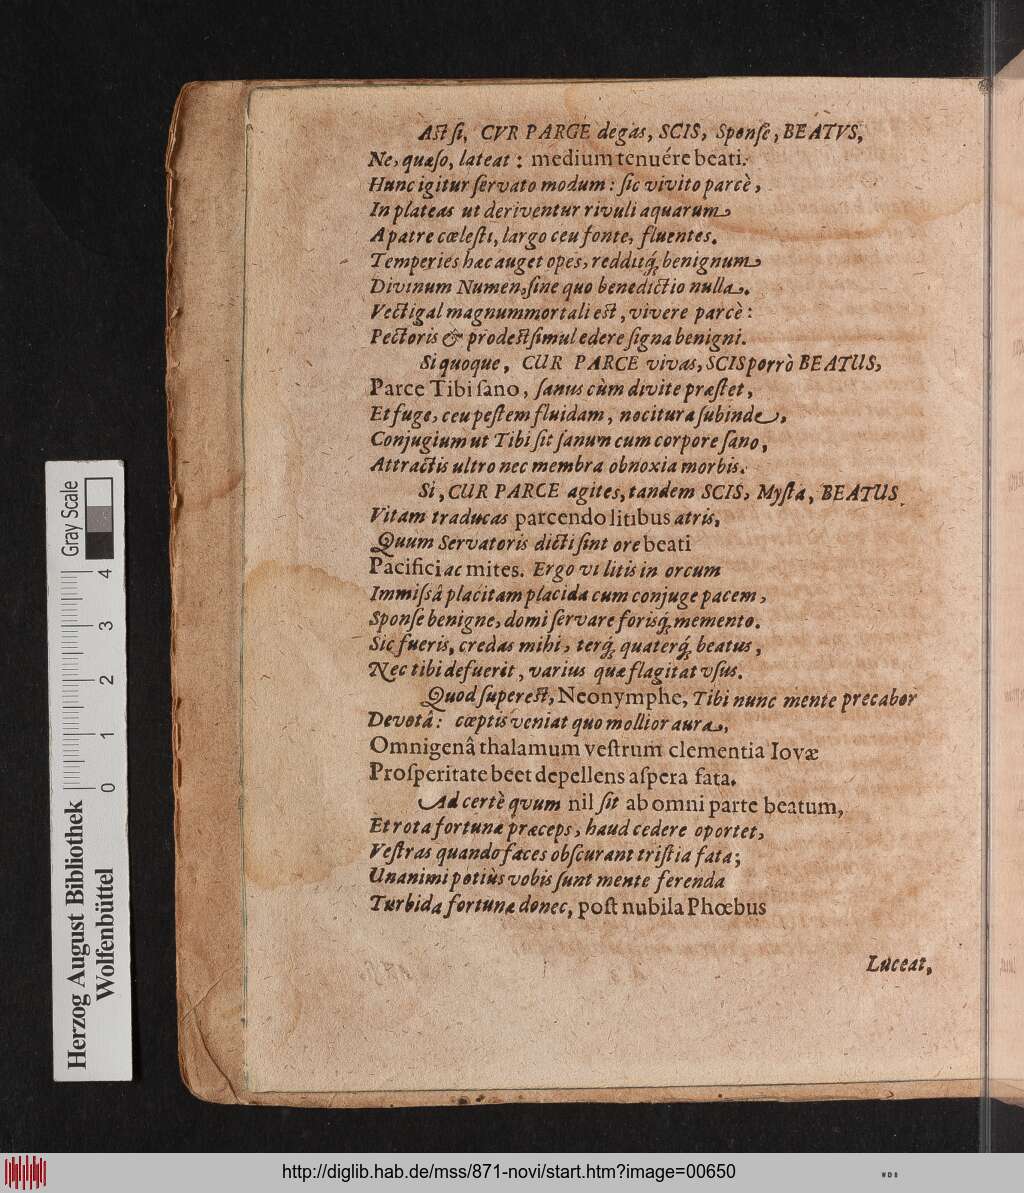 Ast si, CVR PARGE degas, SCIS, Sponse, BEATVS,
Ne, quæso, lateat: medium tenuére beati.
Hunc igitur servato modum: sic vivito parcè,
In plateas ut deriventur rivuli aquarum
A patre cœlesti, largo ceu fonte, fluentes.
Temperies hæc auget opes, redditq́; benignum
Divinum Numen, sine quo benedictio nulla.
Vectigal magnum mortali est, vivere parcè:
Pectoris & prodest simul edere signa benigni.
Si quoque, CUR PARCE vivas, SCIS porrò BEATUS,
Parce Tibi sano, sanus cùm divite præstet,
Et fuge, ceu pestem fluidam, nocitura subinde,
Conjugium ut Tibi sit sanum cum corpore sano,
Attractis ultro nec membra obnoxia morbis.
Si, CUR PARCE agites, tandem SCIS, Mysta, BEATUS
Vitam traducas parcendo litibus atris,
Quum Servatoris dicti sint ore beati
Pacifici ac mites. Ergo vi litis in orcum
Immissâ placitam placida cum conjuge pacem,
Sponse benigne, domi servare forisq́; memento.
Sic fueris, credas mihi, terq́; quaterq́; beatus,
Nec tibi defuerit, varius quæ flagitat vsus.
Quod superest, Neonymphe, Tibi nunc mente precabor
Devotâ: cœptis veniat quo mollior aura,
Omnigenâ thalamum vestrum clementia Iovæ
Prosperitate beet depellens aspera fata.
Ad certè qvum nil sit ab omni parte beatum,
Et rota fortunæ præceps, haud cedere oportet,
Vestras quando faces obscurant tristia fata;
Unanimi potiùs vobis sunt mente ferenda
Turbida fortunæ donec, post nubila Phœbus
Luceat,
Gray Scale
0 1 2 3 4
Herzog August Bibliothek
Wolfenbüttel
http://diglib.hab.de/mss/871-novi/start.htm?image=00650